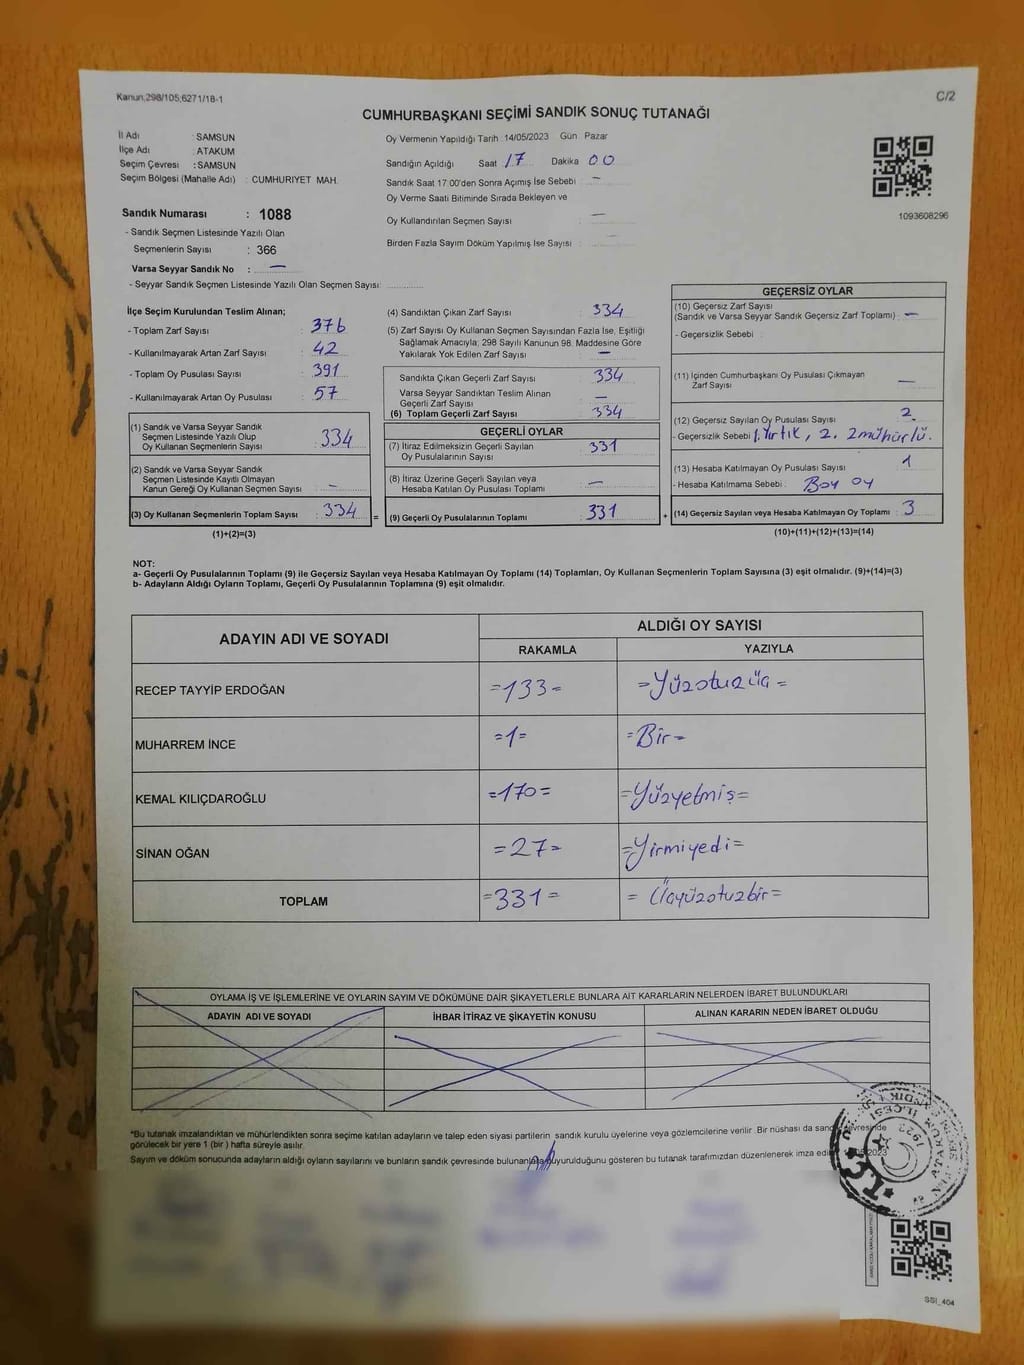 Kanun,298/105,6271/18-1
C/2
CUMHURBAŞKANI SEÇİMİ SANDIK SONUÇ TUTANAĞI
İl Adı : SAMSUN
İlçe Adı : ATAKUM
Seçim Çevresi : SAMSUN
Seçim Bölgesi (Mahalle Adı) : CUMHURİYET MAH.
Sandık Numarası : 1088
- Sandık Seçmen Listesinde Yazılı Olan
Seçmenlerin Sayısı : 366
Varsa Seyyar Sandık No : —
- Seyyar Sandık Seçmen Listesinde Yazılı Olan Seçmen Sayısı:
Oy Vermenin Yapıldığı Tarih : 14/05/2023 Gün Pazar
Sandığın Açıldığı Saat 17 Dakika 00
Sandık Saat 17:00'den Sonra Açımış İse Sebebi : —
Oy Verme Saati Bitiminde Sırada Bekleyen ve
Oy Kullandırılan Seçmen Sayısı : —
Birden Fazla Sayım Döküm Yapılmış İse Sayısı : —
1093608296
İlçe Seçim Kurulundan Teslim Alınan;
- Toplam Zarf Sayısı : 376
- Kullanılmayarak Artan Zarf Sayısı : 42
- Toplam Oy Pusulası Sayısı : 391
- Kullanılmayarak Artan Oy Pusulası : 57
(1) Sandık ve Varsa Seyyar Sandık
Seçmen Listesinde Yazılı Olup
Oy Kullanan Seçmenlerin Sayısı : 334
(2) Sandık ve Varsa Seyyar Sandık
Seçmen Listesinde Kayıtlı Olmayan
Kanun Gereği Oy Kullanan Seçmen Sayısı : —
(3) Oy Kullanan Seçmenlerin Toplam Sayısı : 334 =
(1)+(2)=(3)
(4) Sandıktan Çıkan Zarf Sayısı : 334
(5) Zarf Sayısı Oy Kullanan Seçmen Sayısından Fazla İse, Eşitliği
Sağlamak Amacıyla; 298 Sayılı Kanunun 98. Maddesine Göre
Yakılarak Yok Edilen Zarf Sayısı : —
Sandıkta Çıkan Geçerli Zarf Sayısı : 334
Varsa Seyyar Sandıktan Teslim Alınan
Geçerli Zarf Sayısı : —
(6) Toplam Geçerli Zarf Sayısı : 334
GEÇERLİ OYLAR
(7) İtiraz Edilmeksizin Geçerli Sayılan
Oy Pusulalarının Sayısı : 331
(8) İtiraz Üzerine Geçerli Sayılan veya
Hesaba Katılan Oy Pusulası Toplamı : —
(9) Geçerli Oy Pusulalarının Toplamı : 331 +
GEÇERSİZ OYLAR
(10) Geçersiz Zarf Sayısı
(Sandık ve Varsa Seyyar Sandık Geçersiz Zarf Toplamı) : —
- Geçersizlik Sebebi :
(11) İçinden Cumhurbaşkanı Oy Pusulası Çıkmayan
Zarf Sayısı : —
(12) Geçersiz Sayılan Oy Pusulası Sayısı : 2
- Geçersizlik Sebebi : 1. Yırtık, 2. 2mühürlü.
(13) Hesaba Katılmayan Oy Pusulası Sayısı : 1
- Hesaba Katılmama Sebebi : Boş oy
(14) Geçersiz Sayılan veya Hesaba Katılmayan Oy Toplamı : 3
(10)+(11)+(12)+(13)=(14)
NOT:
a- Geçerli Oy Pusulalarının Toplamı (9) ile Geçersiz Sayılan veya Hesaba Katılmayan Oy Toplamı (14) Toplamları, Oy Kullanan Seçmenlerin Toplam Sayısına (3) eşit olmalıdır. (9)+(14)=(3)
b- Adayların Aldığı Oyların Toplamı, Geçerli Oy Pusulalarının Toplamına (9) eşit olmalıdır.
ADAYIN ADI VE SOYADI
ALDIĞI OY SAYISI
RAKAMLA YAZIYLA
RECEP TAYYİP ERDOĞAN =133= =Yüzotuzüç=
MUHARREM İNCE =1= =Bir=
KEMAL KILIÇDAROĞLU =170= =Yüzyetmiş=
SİNAN OĞAN =27= =Yirmiyedi=
TOPLAM =331= =Üçyüzotuzbir=
OYLAMA İŞ VE İŞLEMLERİNE VE OYLARIN SAYIM VE DÖKÜMÜNE DAİR ŞİKAYETLERLE BUNLARA AİT KARARLARIN NELERDEN İBARET BULUNDUKLARI
ADAYIN ADI VE SOYADI İHBAR İTİRAZ VE ŞİKAYETİN KONUSU ALINAN KARARIN NEDEN İBARET OLDUĞU
*Bu tutanak imzalandıktan ve mühürlendikten sonra seçime katılan adayların ve talep eden siyasi partilerin sandık kurulu üyelerine veya gözlemcilerine verilir. Bir nüshası da sandık çevresinde
görülecek bir yere 1 (bir) hafta süreyle asılır.
Sayım ve döküm sonucunda adayların aldığı oyların sayılarını ve bunların sandık çevresinde bulunanlara duyurulduğunu gösteren bu tutanak tarafımızdan düzenlenerek imza
T.C.
SSI_404